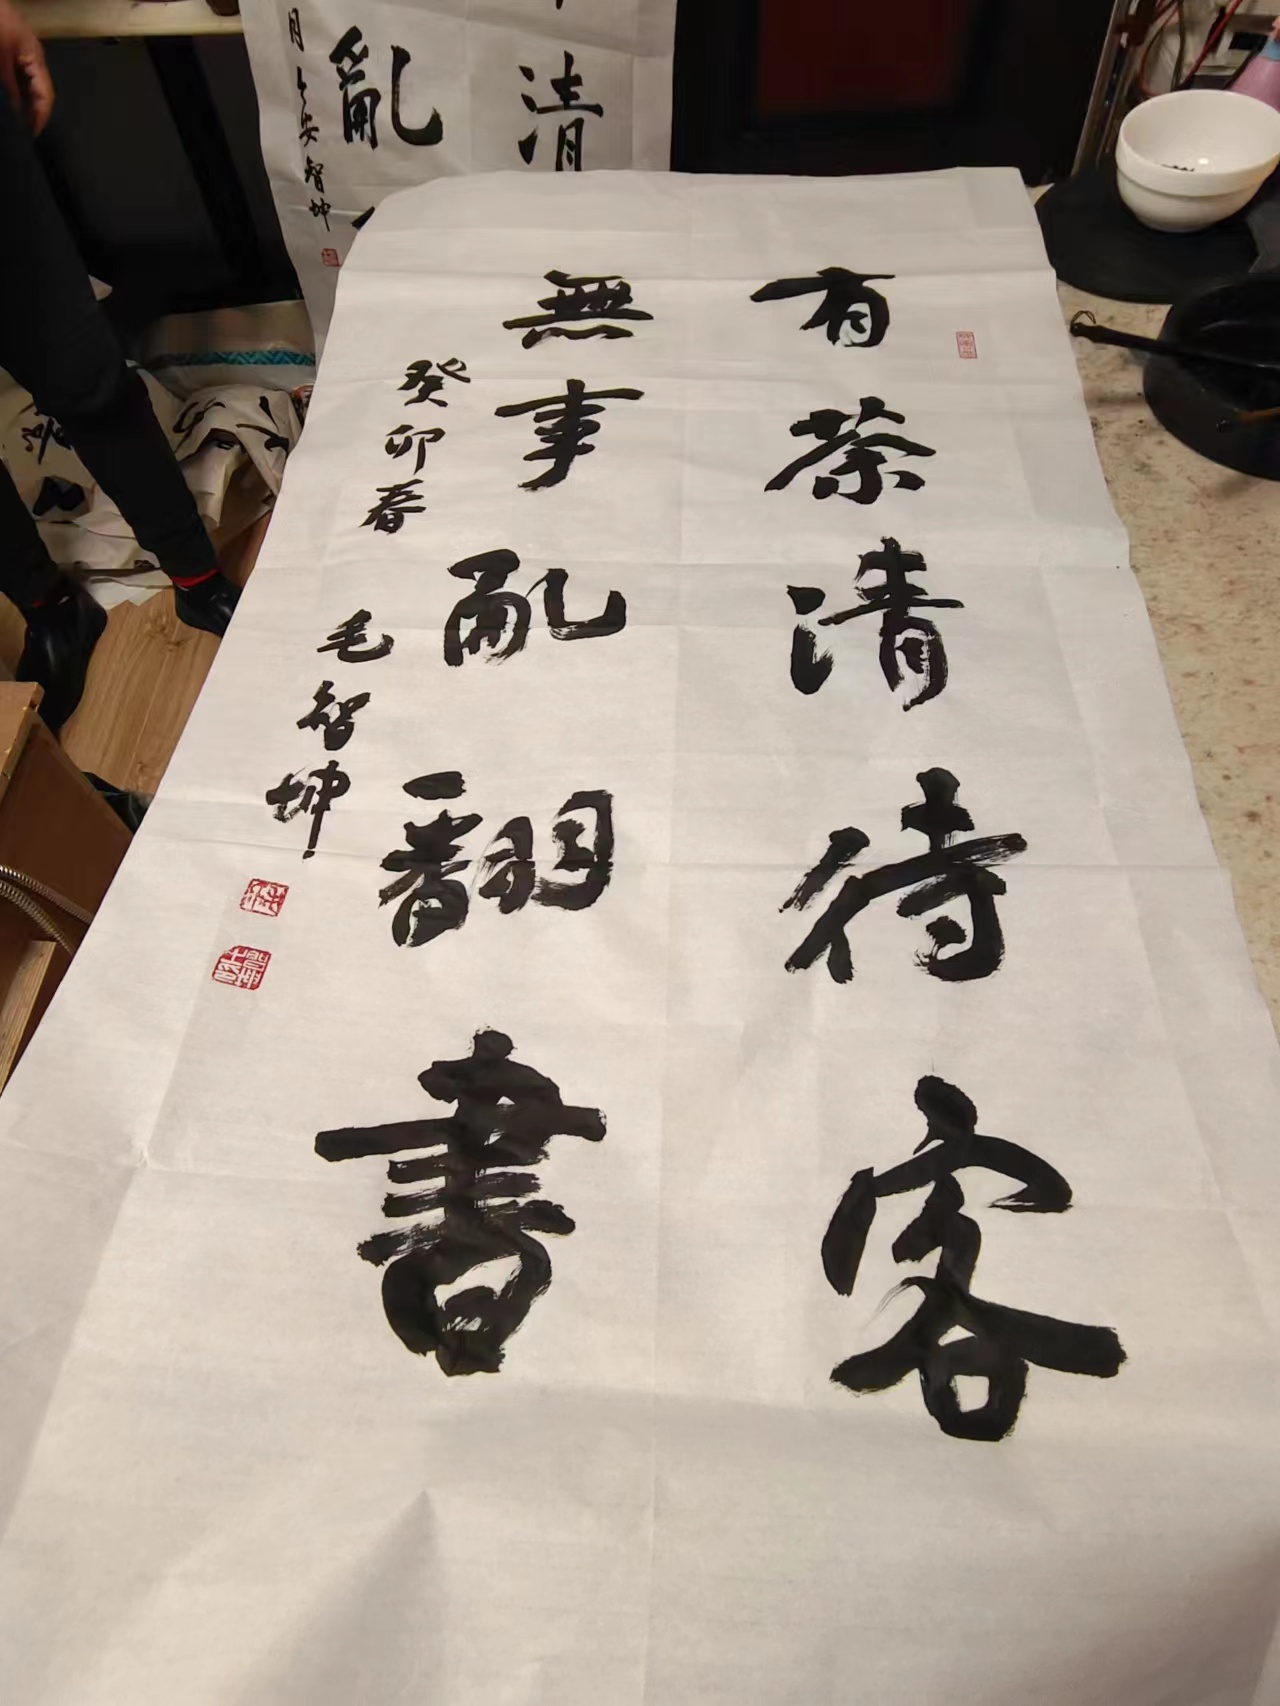 有茶清待客
無事亂翻書
癸卯春 毛智坤
清
亂
月 智坤